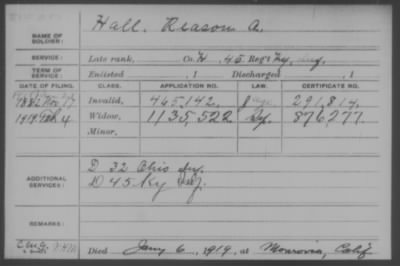 Hall. Reason A.
NAME OF SOLDIER:
SERVICE: Late rank, Co. H. 45 Reg't Ky. Inf.
TERM OF SERVICE: Enlisted , 1 Discharged , 1
DATE OF FILING. CLASS. APPLICATION NO. LAW. CERTIFICATE NO.
1882 Nov 17 Invalid, 465,142. 291,814.
1919 Feb 4 Widow, 1135,522 Ky. 876,277.
Minor,
ADDITIONAL SERVICES: D 32 Ohio Inf.
D 45 Ky Inf.
REMARKS:
Died Jany 6, 1919, at Monrovia, Calif